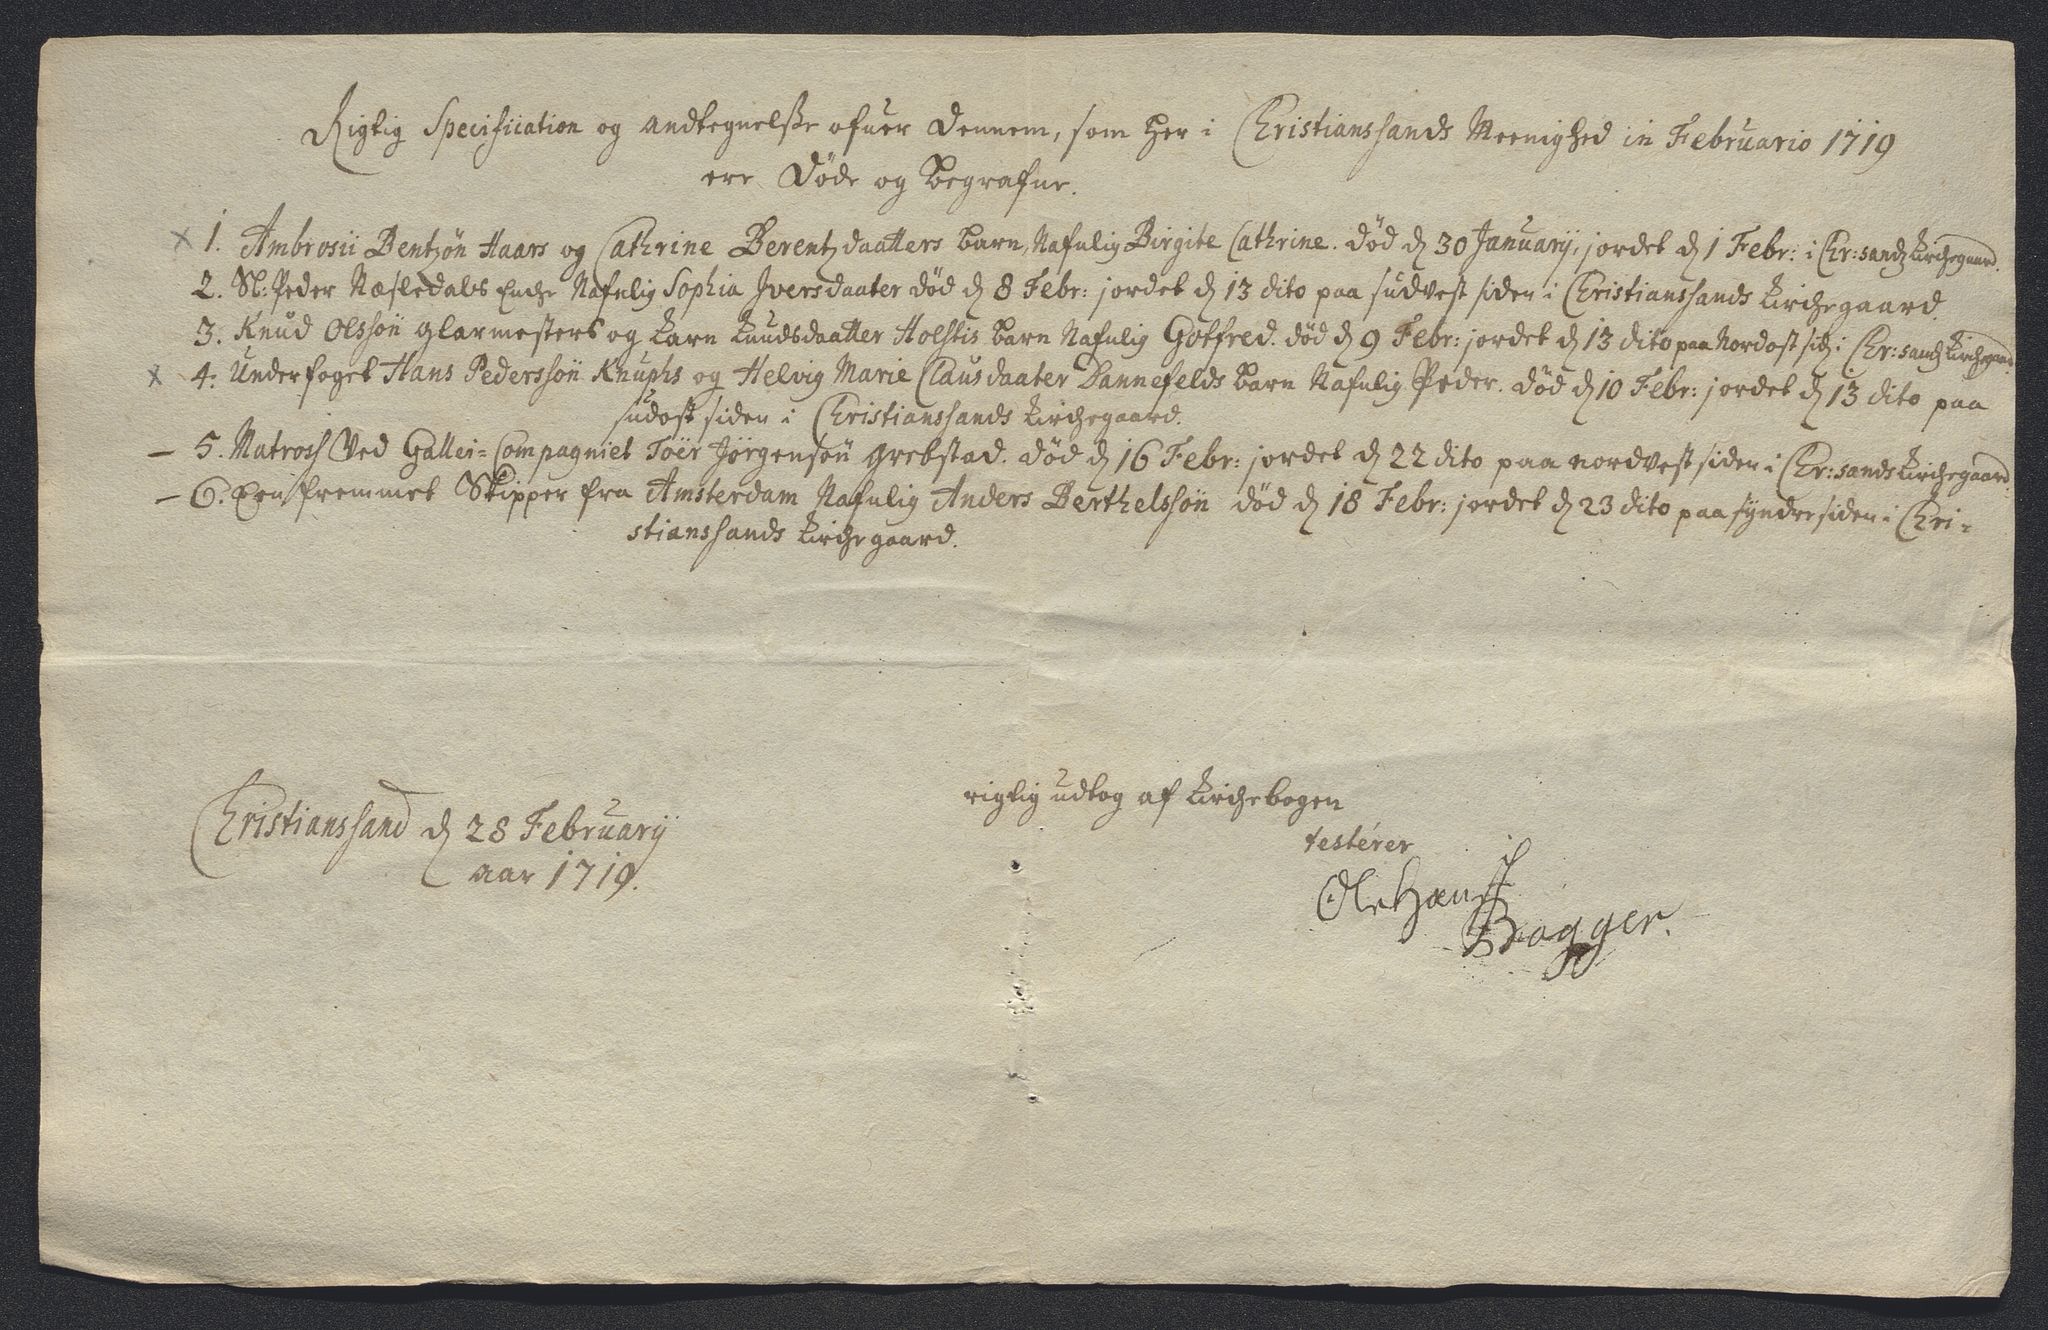 Rigtig Specification og Andtegnelsse ofuer Dennem, som her i Christianssands Meenighed in Februario 1719
ere Døde og Begrafne.
1. Ambrosii Bentzøn Haars og Cathrine Berentzdaatters barn, Nafnlig Birgite Cathrine. død d 30 Januarij, jordet d 1 Febr: i Chr:sandz Kirchegaard.
2. Sl: Peder Næsledals Enche Nafnlig Sophia Iversdaater død d 8 Febr: jordet d 13 dito paa sudvest siden i Christianssands Kirchegaard.
3. Knud Olssøn glarmesters og Karn Knudsdaatter Holstis barn Nafnlig Gotfred. død d 9 Febr: jordet d 13 dito paa Nordost sid: i Chr:sandz Kirchegaard
4. Underfoget Hans Pederssøn Knuphs og Helvig Marie Clausdaater Dannefelds barn Nafnlig Peder. død d 10 Febr: jordet d 13 dito paa
sudost siden i Christianssands Kirchegaard.
5. Matross Ved Gallei=Compagniet Toer Jørgensøn Grebstad. død d 16 Febr: jordet d 22 dito paa nordvest siden i Chr:sands Kirchegaard.
6. Een fremmet Skipper fra Amsterdam Nafnlig Anders Berthelssøn død d 18 Febr: jordet d 23 dito paa syndre siden i Chri=
stianssands Kirchegaard.
rigtig udtog af Kirchebogen
Christianssand d 28 Februarij
testérer
aar 1719.
Ole Hans
Bagger.